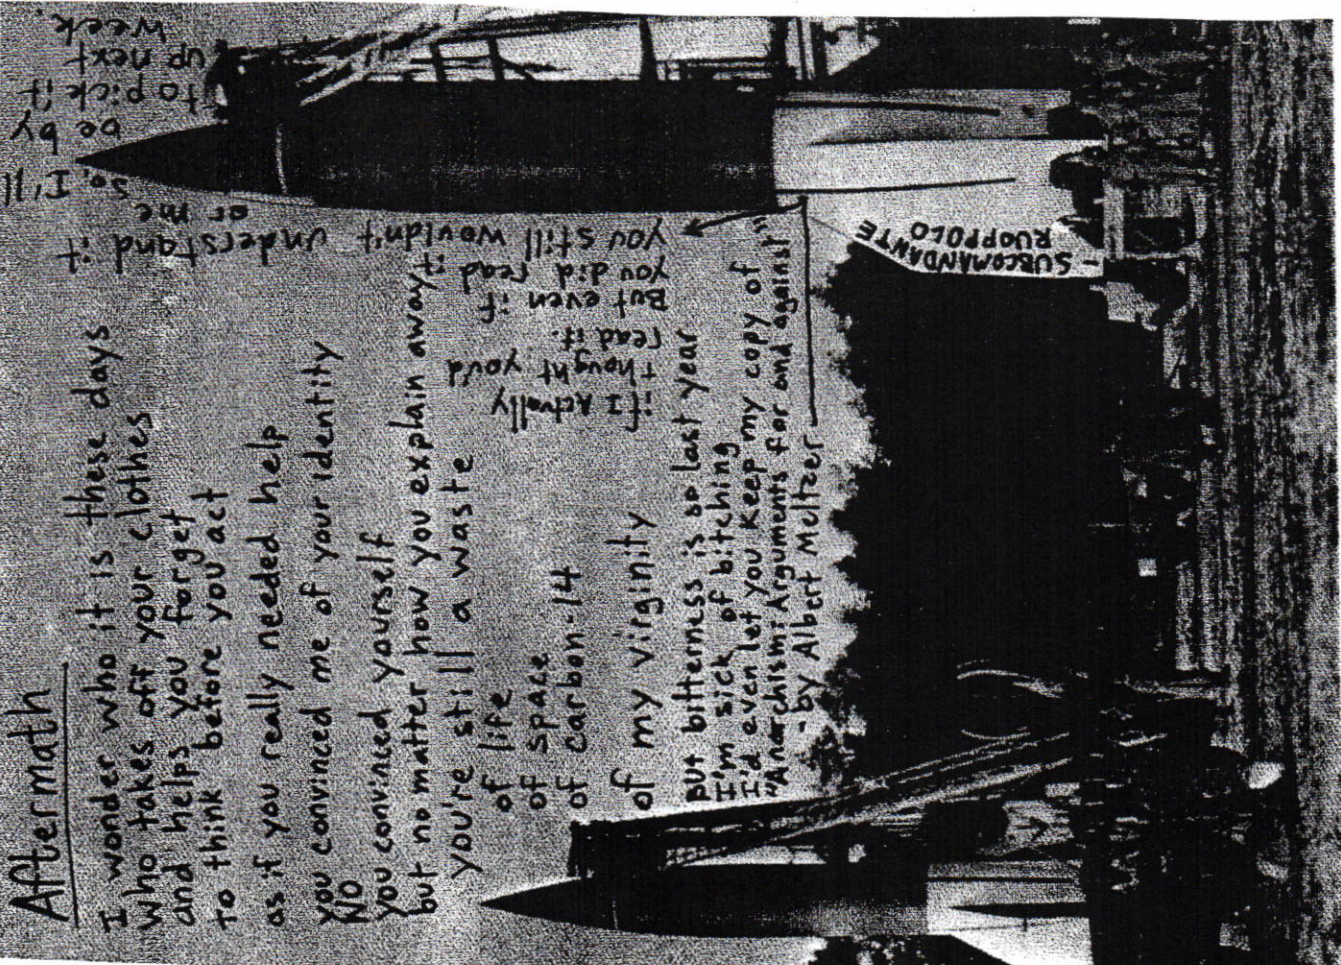 Aftermath
I wonder who it is these days
who takes off your clothes
and helps you forget
to think before you act
as if you really needed help
you convinced me of your identity
NO
you convinced yourself
but no matter how you explain away it
you're still a waste
of life
of space
of carbon-14
of my virginity
but bitterness is so last year
I'm sick of bitching
I'd even let you keep my copy of
"Anarchism: Arguments for and against"
- by Albert Meltzer
if I actually
thought you'd
read it.
But even if
you did read it
you still wouldn't understand it
or me
so, I'll
be by
to pick it
up next
week.
- SUBCOMANDANTE
RUOPPOLO